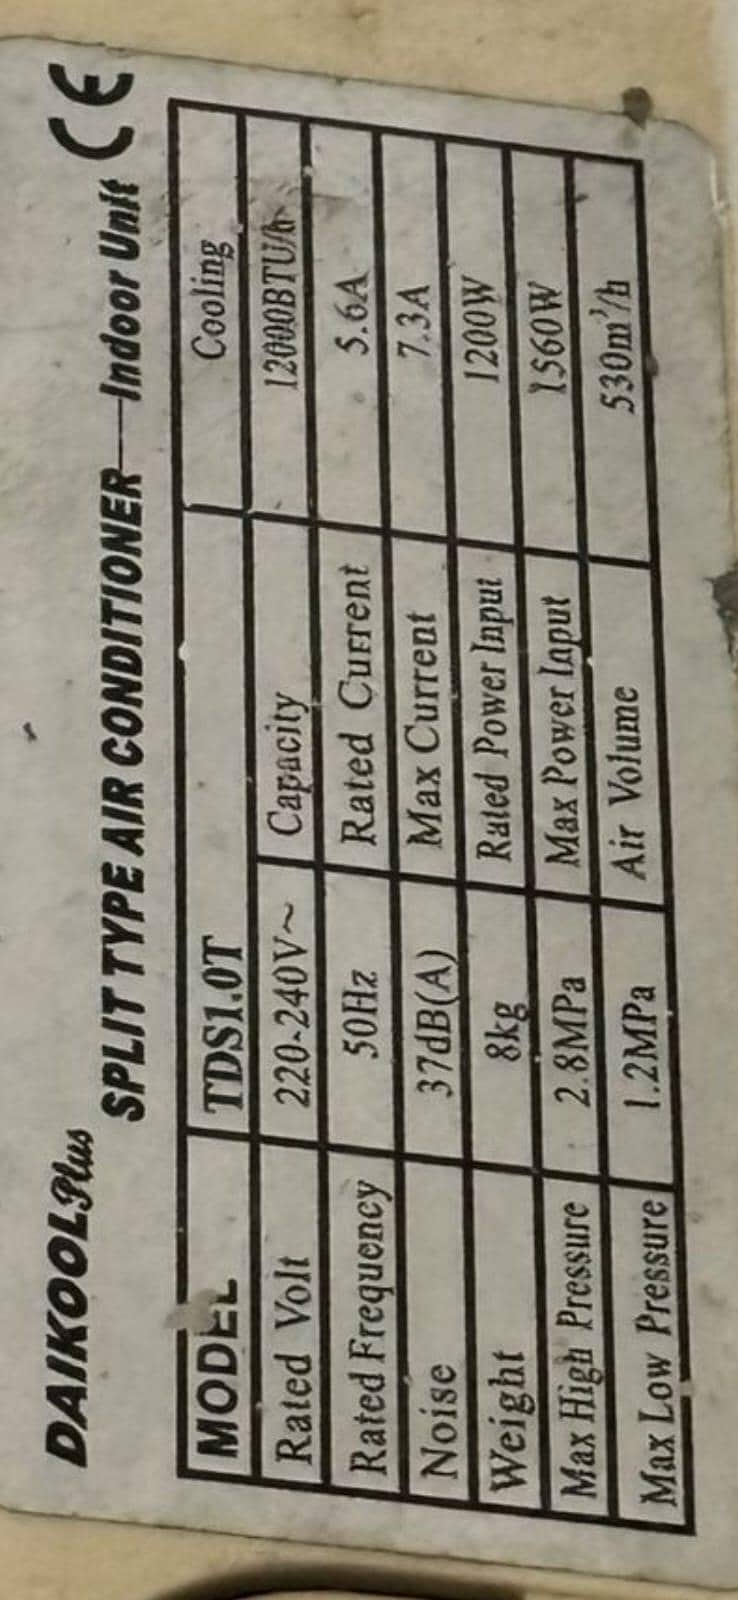 DAIKOOLPlus
SPLIT TYPE AIR CONDITIONER—Indoor Unit CE
MODEL TDS1.0T Cooling
Rated Volt 220-240V~ Capacity 12000BTU/h
Rated Frequency 50Hz Rated Current 5.6A
Noise 37dB(A) Max Current 7.3A
Weight 8kg Rated Power Input 1200W
Max High Pressure 2.8MPa Max Power Input 1560W
Max Low Pressure 1.2MPa Air Volume 530m³/h